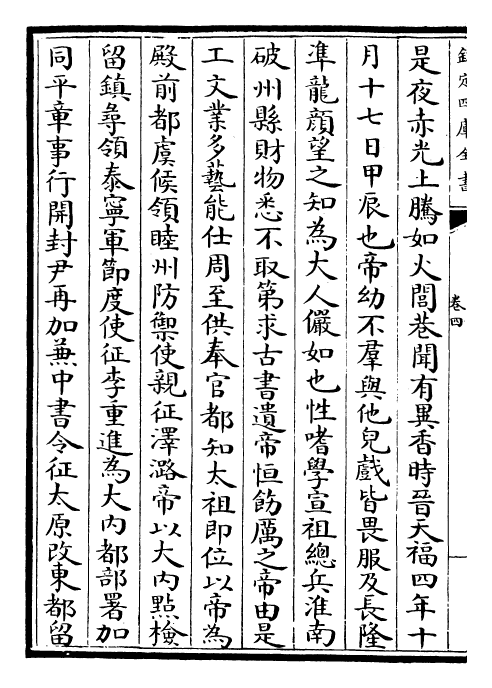 欽定四庫全書
卷四
是夜赤光上騰如火閭巷聞有異香時晉天福四年十
月十七日甲辰也帝幼不羣與他兒戲皆畏服及長隆
凖龍顔望之知為大人儼如也性嗜學宣祖總兵淮南
破州縣財物悉不取第求古書遺帝恒飭厲之帝由是
工文業多藝能仕周至供奉官都知太祖即位以帝為
殿前都虞候領睦州防禦使親征澤潞帝以大内㸃檢
留鎮尋領泰寧軍節度使征李重進為大内都部署加
同平章事行開封尹再加兼中書令征太原改東都留